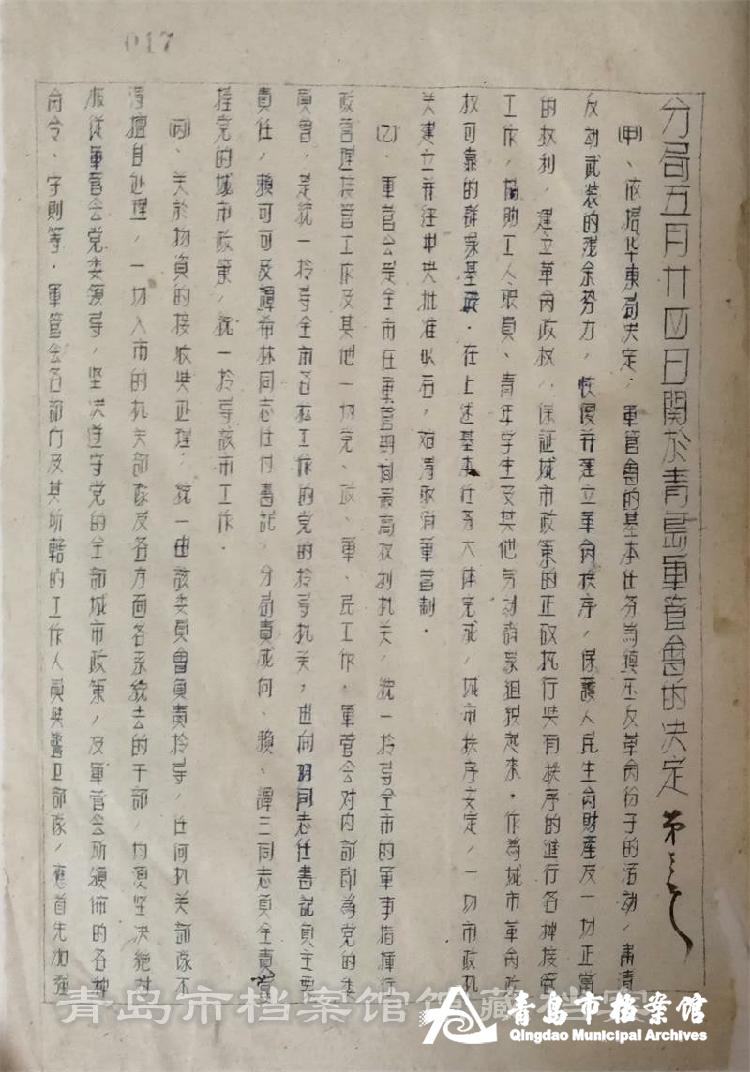 017
分局五月廿四日關於青島軍管會的決定
㈠甲、依據华東局决定，軍管會的基本任务為鎮压反革命份子的活动，肃清
反动武装的残余势力，恢復并建立革命秩序，保護人民生命財產及一切正當
的权利，建立革命政权，保証城市政策的正确执行與有秩序的進行各种接管
工作，協助工人、職員、青年学生及其他劳动群众組織起來，作為城市革命政
权可靠的群众基礎。在上述基本任务大体完成，城市秩序安定，一切市政机
关建立并经中央批准以后，始得取消軍管制。
㈡乙、軍管会是全市在軍管期间最高权利机关，統一領导全市的軍事指揮行
政管理接管工作及其他一切党、政、軍、民工作。軍管会对内部即為党的
員會，是統一領导全市各种工作的党的領导机关，由向明同志任書記負主要
責任，賴可可及譚希林同志任付書記，分局責成向、賴、譚三同志負全責掌
握党的城市政策，統一領导該市工作。
丙、关於物資的接收與处理，統一由該委員會負責領导，任何机关部隊不
得擅自处理，一切入市的机关部隊及各方面各系統去的干部，均須坚决絶对
服從軍管会党委領导，坚决遵守党的全部城市政策，及軍管会所頒佈的各种
命令、守則等。軍管会各部门及其所轄的工作人員與警卫部隊，應首先加强
青岛市档案馆馆藏档案
青岛市档案馆
Qingdao Municipal Archives